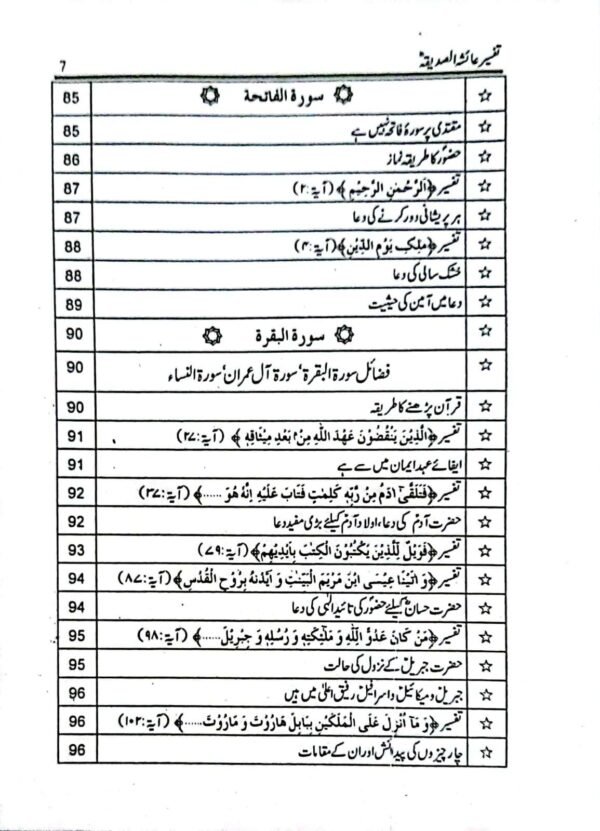 تفسیر عائشہ الصدیقہؓ 7
☆ ۞ سورة الفاتحة ۞ 85
☆ مقتدی پر سورۂ فاتحہ نہیں ہے 85
☆ حضورؐ کا طریقہ نماز 86
☆ تفسیر ﴿اَلرَّحْمٰنِ الرَّحِيْمِ﴾ (آیۃ:۲) 87
☆ ہر پریشانی دور کرنے کی دعا 87
☆ تفسیر ﴿مٰلِكِ يَوْمِ الدِّيْنِ﴾ (آیۃ:۴) 88
☆ خشک سالی کی دعا 88
☆ دعا میں آمین کی حیثیت 89
☆ ۞ سورة البقرة ۞ 90
☆ فضائل سورۃ البقرۃ‘ سورۃ آل عمران‘ سورۃ النساء 90
☆ قرآن پڑھنے کا طریقہ 90
☆ تفسیر ﴿الَّذِيْنَ يَنْقُضُوْنَ عَهْدَ اللّٰهِ مِنْۢ بَعْدِ مِيْثَاقِهٖ﴾ (آیۃ:۲۷) 91
☆ ایفائے عہد ایمان میں سے ہے 91
☆ تفسیر ﴿فَتَلَقّٰىٓ اٰدَمُ مِنْ رَّبِّهٖ كَلِمٰتٍ فَتَابَ عَلَيْهِ اِنَّهٗ هُوَ ......﴾ (آیۃ:۳۷) 92
☆ حضرت آدمؑ کی دعا، اولاد آدمؑ کیلئے بڑی مفید دعا 92
☆ تفسیر ﴿فَوَيْلٌ لِّلَّذِيْنَ يَكْتُبُوْنَ الْكِتٰبَ بِاَيْدِيْهِمْ﴾ (آیۃ:۷۹) 93
☆ تفسیر ﴿وَ اٰتَيْنَا عِيْسَى ابْنَ مَرْيَمَ الْبَيِّنٰتِ وَ اَيَّدْنٰهُ بِرُوْحِ الْقُدُسِ﴾ (آیۃ:۸۷) 94
☆ حضرت حسانؓ کیلئے حضورؐ کی تائید الٰہی کی دعا 94
☆ تفسیر ﴿مَنْ كَانَ عَدُوًّا لِّلّٰهِ وَ مَلٰٓئِكَتِهٖ وَ رُسُلِهٖ وَ جِبْرِيْلَ ......﴾ (آیۃ:۹۸) 95
☆ حضرت جبریلؑ کے نزول کی حالت 95
☆ جبریل و میکائیل و اسرافیل رفیق اعلیٰ میں ہیں 96
☆ تفسیر ﴿وَ مَآ اُنْزِلَ عَلَى الْمَلَكَيْنِ بِبَابِلَ هَارُوْتَ وَ مَارُوْتَ ......﴾ (آیۃ:۱۰۲) 96
☆ چار چیزوں کی پیدائش اور ان کے مقامات 96